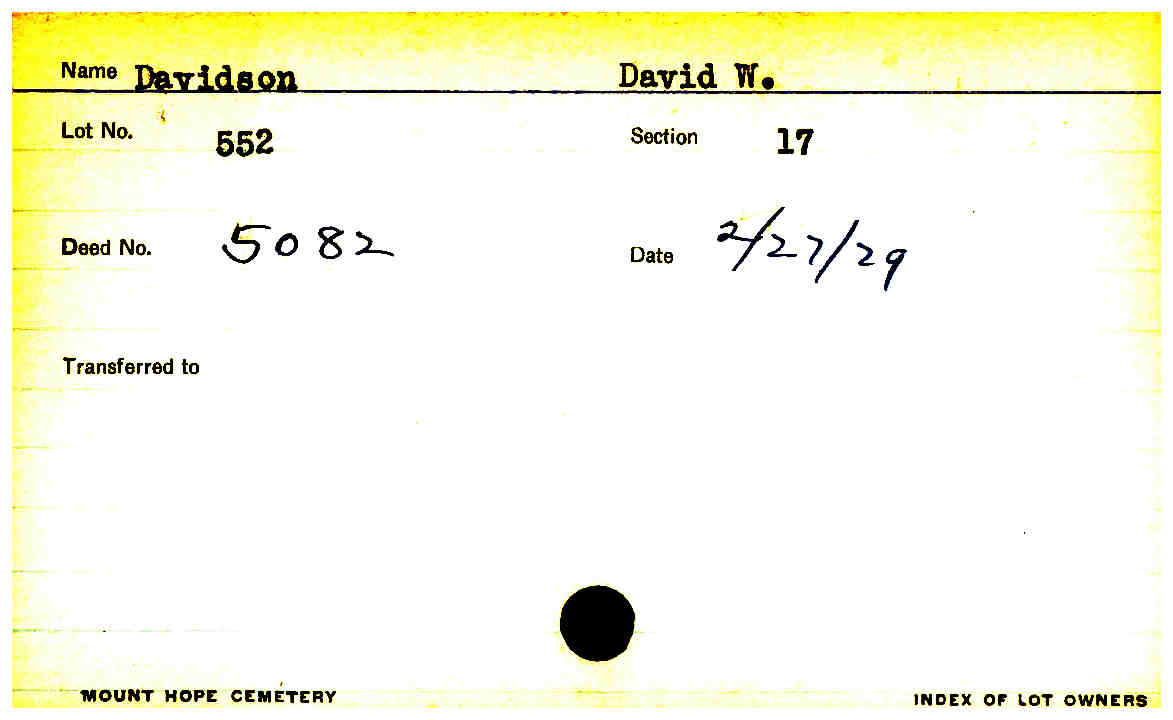 Name Davidson David W.
Lot No. 552 Section 17
Deed No. 5082 Date 2/27/29
Transferred to
MOUNT HOPE CEMETERY INDEX OF LOT OWNERS